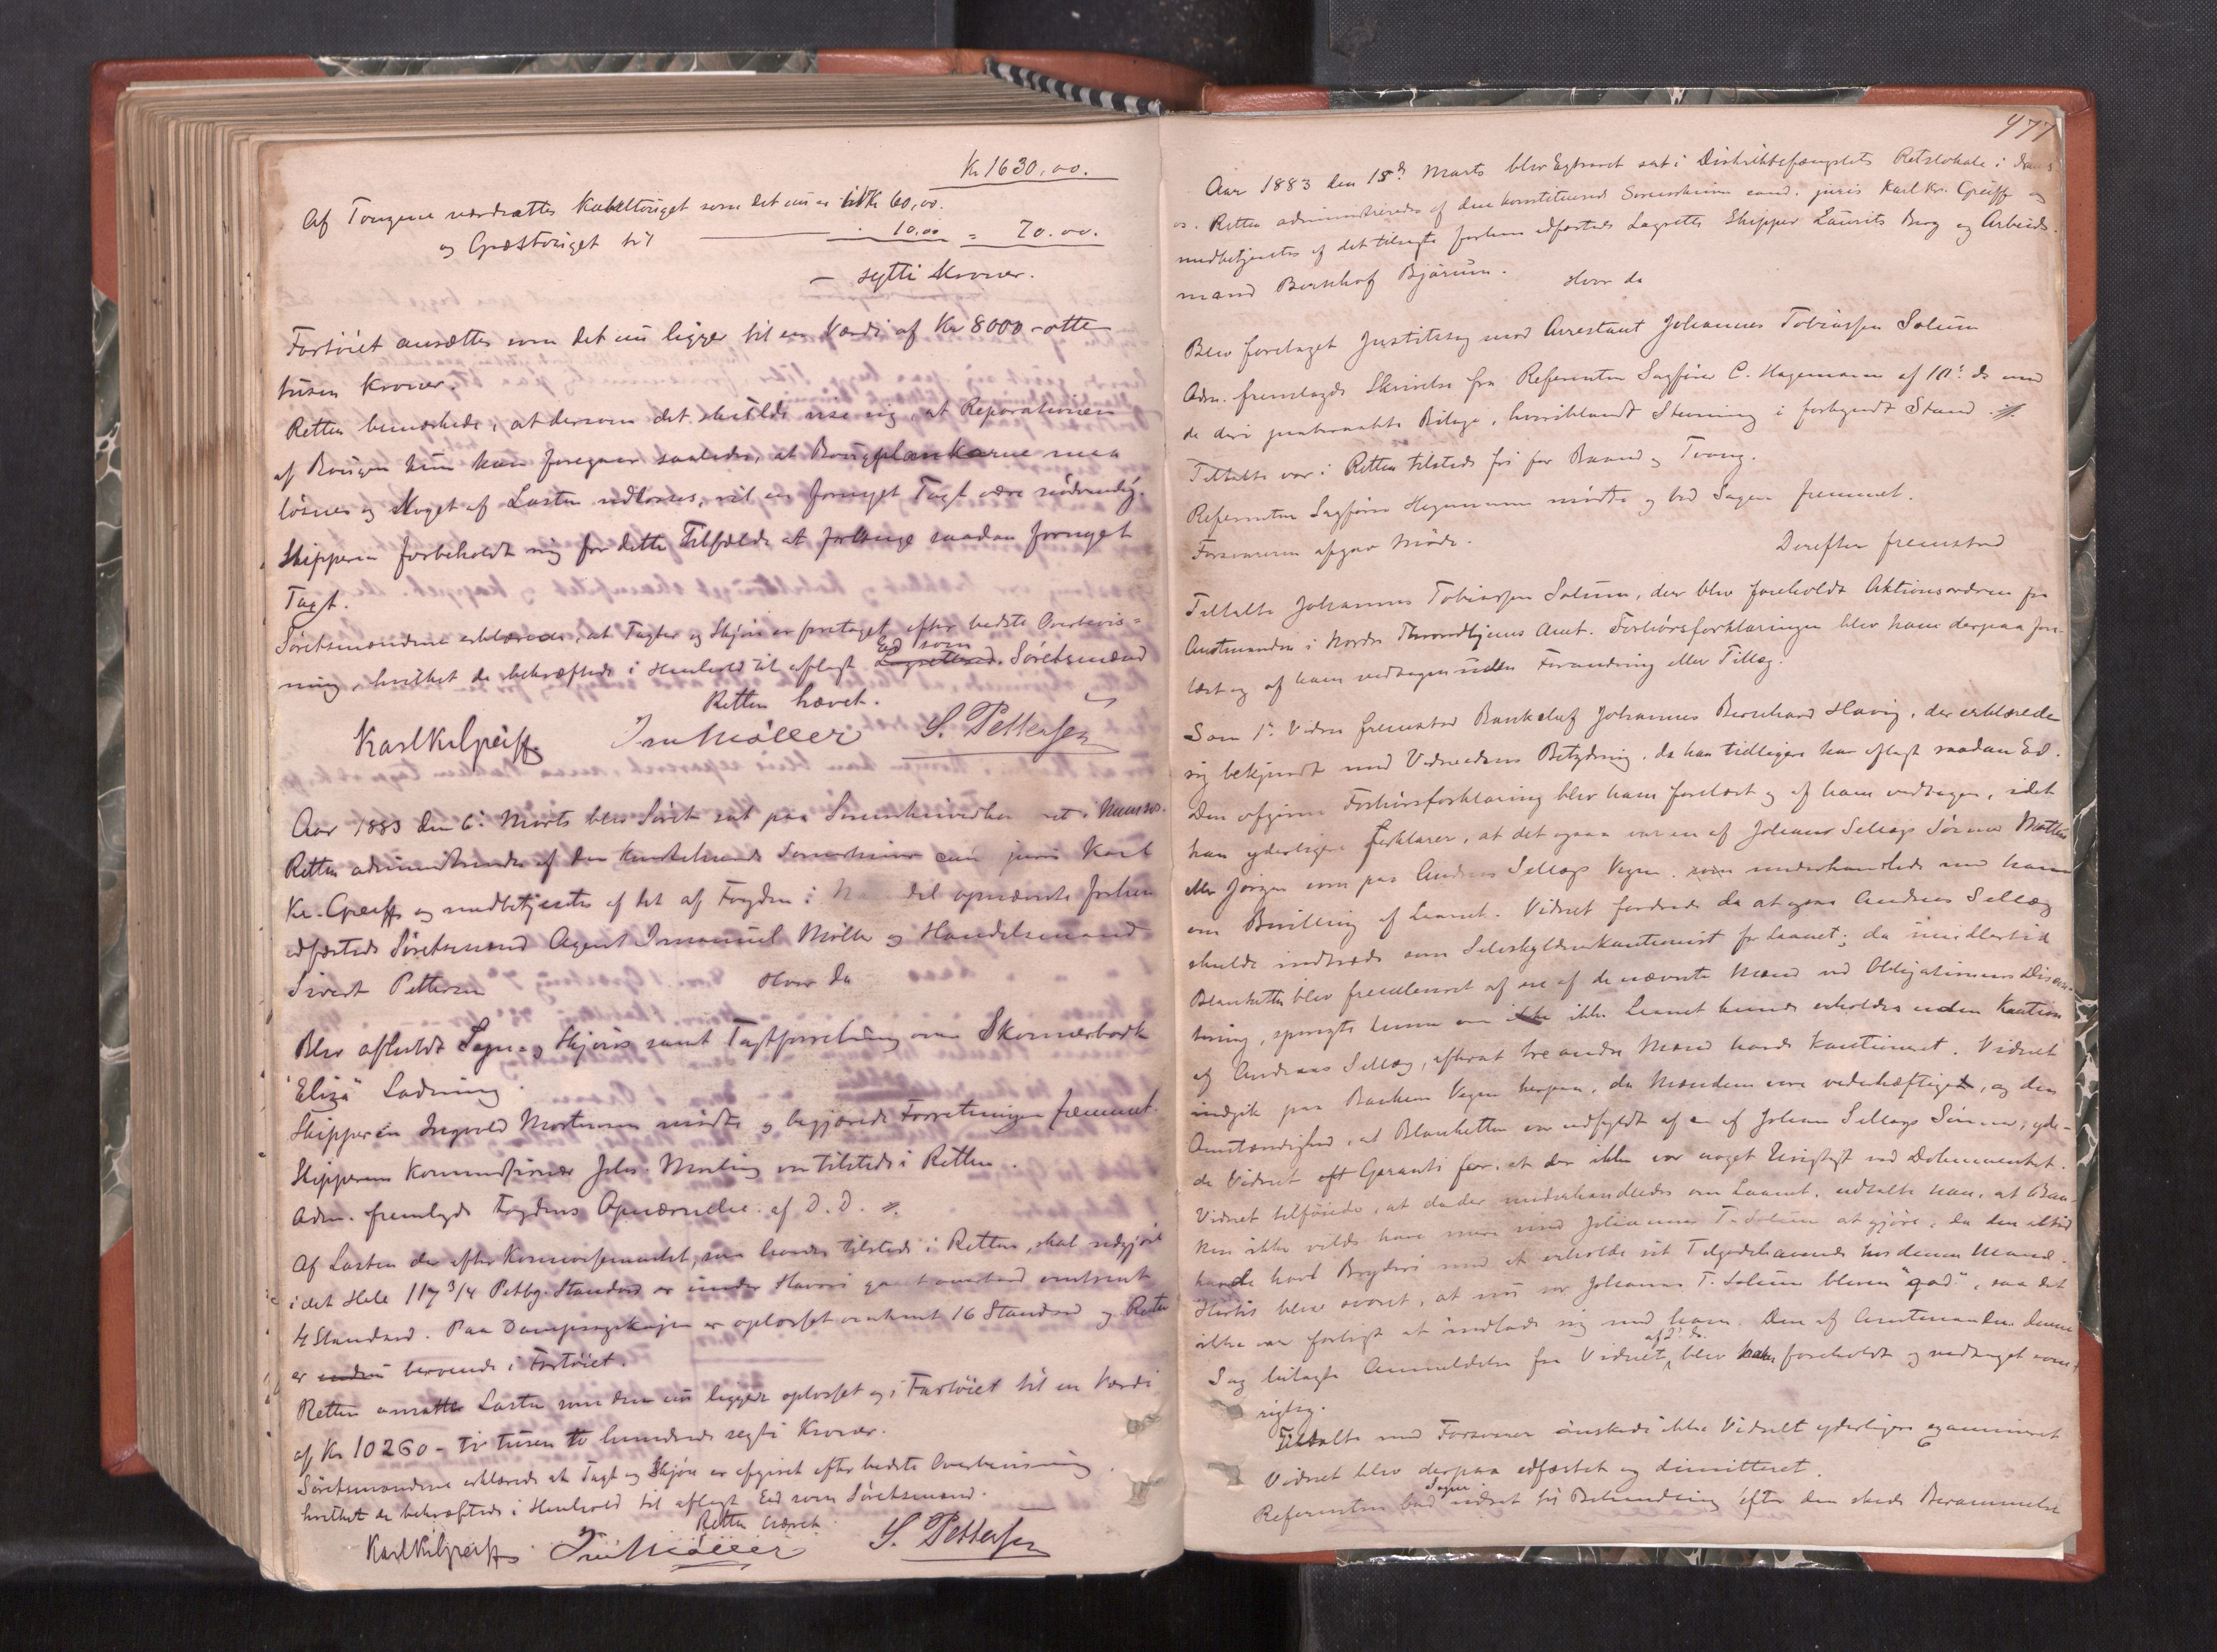 Kr 1630,00.
Af Tougene værdsættes Kabeltouget som det nu er til Kr 60,00.
og Græstouget til 10,00 = 70.00.
– sytti Kroner.
Fartöiet ansættes som det nu ligger til en Værdi af Kr 8000 – otte
tusen Kroner.
Retten bemærkede, at dersom det skulde vise sig, at Reparationen
af Bougen kun kan foregaa saaledes, at Bougplankerne maa
løsnes og Noget af Lasten udlosses, vil en fornyet Taxt være nödvendig.
Skipperen forbeholdt sig for dette Tilfælde at forlange saadan fornyet
Taxt.
Søretsmændene erklærede, at Taxter og Skjön er foretaget efter bedste Overbevis=
ning, hvilket de bekræftede i Henhold til aflagt Ed som Søretsmænd
Retten hævet.
Karl Kr. Greiff Im Møller S. Pettersen
Aar 1883 den 6. Marts blev Søret sat paa Sorenskriverkontoret i Namsos.
Retten administreredes af den konstituerede Sorenskriver cand juris Karl
Kr. Greiff og medbetjentes af det af Fogden i Namdal opnævnte forhen
edfæstede Søretsmænd Agent Immanuel Møller og Handelsmand
Sivert Pettersen Hvor da
Blev afholdt Syns- og Skjöns samt Taxtforretning over Skonnertbark
"Eliza" Ladning.
Skipperen Ingvald Mortensen mødte og begjærede Forretningen fremmet.
Skipperens Kommissionær Johs. Moeling var tilstede i Retten.
Adm. fremlagde Fogdens Opnævnelse af D. D.
Af Lasten der efter Konnossementet, som havdes tilstede i Retten, skal udgjøre
i det Hele 117 3/4 Petbg. Standard er under Havari gaaet overbord omtrent
4 Standard. Paa Dampsagskajen er oplosset omtrent 16 Standard og Resten
er endnu beroende i Fartöiet.
Retten ansatte Lasten som den nu ligger oplosset og i Fartöiet til en Værdi
af Kr 10260 – ti tusen to hundrede segti Kroner.
Søretsmændene erklærede at Taxt og Skjön er afgivet efter bedste Overbevisning
hvilket de bekræftede i Henhold til aflagt Ed som Søretsmænd.
Retten hævet
Karl Kr. Greiff Im Møller S. Pettersen
477
Aar 1883 den 15d Marts blev Extraret sat i Distriktsfængslets Retslokale i Nams
os. Retten administreredes af den konstituerede Sorenskriver cand. juris Karl Kr. Greiff og
medbetjentes af det tilsagte forhen edfæstede Lagrette Skipper Laurits Berg og Arbeids-
mand Bernhof Bjørum.
Hvor da
Blev foretaget Justitssag mod Arrestant Johannes Tobiassen Solum
Adm. fremlagde Skrivelse fra Referenten Sagfører C. Hagemann af 10. ds med
de deri paaberaabte Bilage, hvoriblandt Stevning i forkyndt Stand
Tiltalte var i Retten tilstede fri for Baand og Tvang.
Referenten Sagfører Hagemann mødte og bad Sagen fremmet.
Forsvareren afgav Møde.
Derefter fremstod
Tiltalte Johannes Tobiassen Solum, der blev foreholdt Aktionsordren fra
Amtmanden i Nordre Throndhjems Amt. Forhørsforklaringen blev ham derpaa fore-
læst og af ham vedtagen uden Forandring eller Tillæg.
Som 1. Vidne fremstod Bankchef Johannes Bernhard Havig, der erklærede
sig bekjendt med Vidneedens Betydning, da han tidligere har aflagt saadan Ed.
Den afgivne Forhørsforklaring blev ham forelæst og af ham vedtagen, idet
han yderligere forklarer, at det ogsaa var en af Johans Sellægs Sønner Mathias
eller Jørgen som paa Andreas Sellægs Vegne underhandlede med ham
om Bevilling af Laanet. Vidnet fordrede da at ogsaa Andreas Sellæg
skulde indtræde som Selvskyldnerkautionist for Laanet; da imidlertid
Blanketten blev fremleveret af en af de nævnte Mænd ved Obligationens Diskon-
tering, spurgte denne om ikke Laanet kunde erholdes uden Kaution
af Andreas Sellæg, efterat tre andre Mænd havde kautioneret. Vidnet
indgik paa Bankens Vegne herpaa, da Mændene vare vederhæftige, og den
Omstændighed, at Blanketten var udfyldt af en af Johan Sellægs Sönner, yde-
de Vidnet oft Garanti for, at der ikke var noget Urigtigt ved Dokumentet.
Vidnet tilföiede, at da der underhandledes om Laanet, udtalte han, at Ban-
ken ikke vilde have mere med Johannes T. Solum at gjöre, da den altid
havde havt Bryderi med at erholde sit Tilgodehavende hos denne Mand.
Hertil blev svaret, at nu var Johannes T. Solum bleven "god", saa det
ikke var farligt at indlade sig med ham. Den af Amtmanden denne
Sag bilagte Anmeldelse fra Vidnet af d. ds. blev ham foreholdt og vedtaget som
rigtig.
Tiltalte med Forsvarer ønskede ikke Vidnet yderligere examineret
Vidnet blev derpaa edfæstet og dimitteret.
Referenten bad Sagen udsat til Behandling efter den skede Berammelse